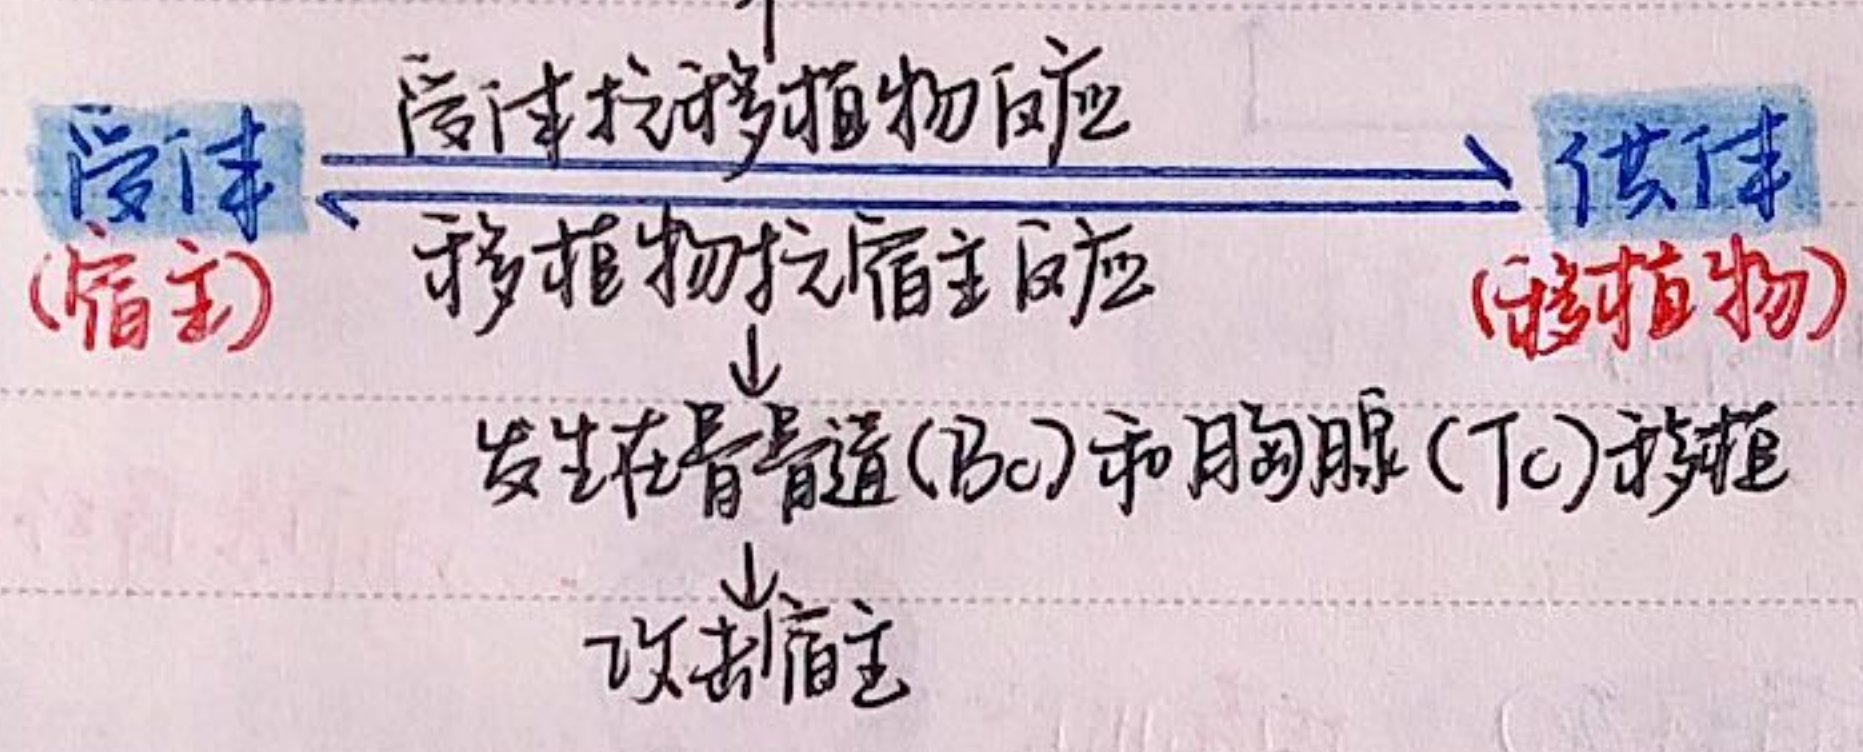 受体抗移植物反应
受体 供体
(宿主) 移植物抗宿主反应 (移植物)
↓
发生在骨骨道(Bc)和胸腺(Tc)移植
↓
攻击宿主